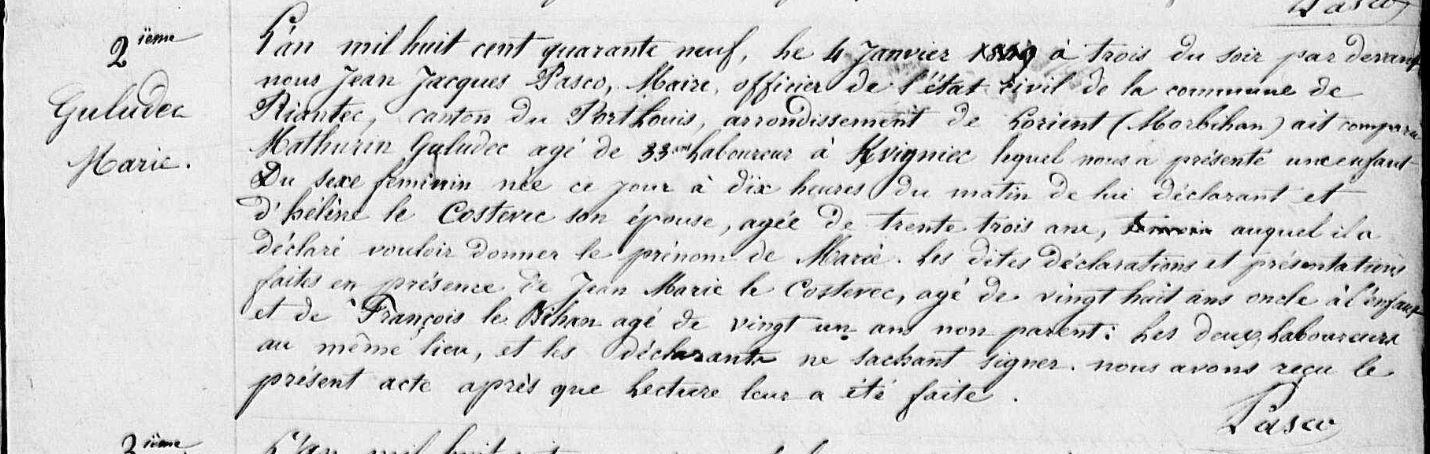 Pasco
2ième
Guludec
Marie.
L'an mil huit cent quarante neuf, le 4 Janvier 1849 à trois du soir par devant
nous Jean Jacques Pasco, Maire, officier de l'état civil de la commune de
Riantec, canton du Port Louis, arrondissement de Lorient (Morbihan) ait comparu
Mathurin Guludec agé de 33 ans laboureur à Kvigniec lequel nous a présenté une enfant
Du sexe féminin née ce jour à dix heures du matin de lui déclarant et
d'hélène le Costevec son épouse, agée de trente trois ans, auquel il a
déclaré vouloir donner le prénom de Marie. Les dites déclarations et présentations
faites en présence de Jean Marie le Costevec, agé de vingt huit ans oncle à l'enfant
et de François le Bihan agé de vingt un ans non parent: Les deux laboureurs
au même lieu, et les déclarants ne sachant signer. nous avons reçu le
présent acte après que lecture leur a été faite.
Pasco
3ième
L'an mil huit